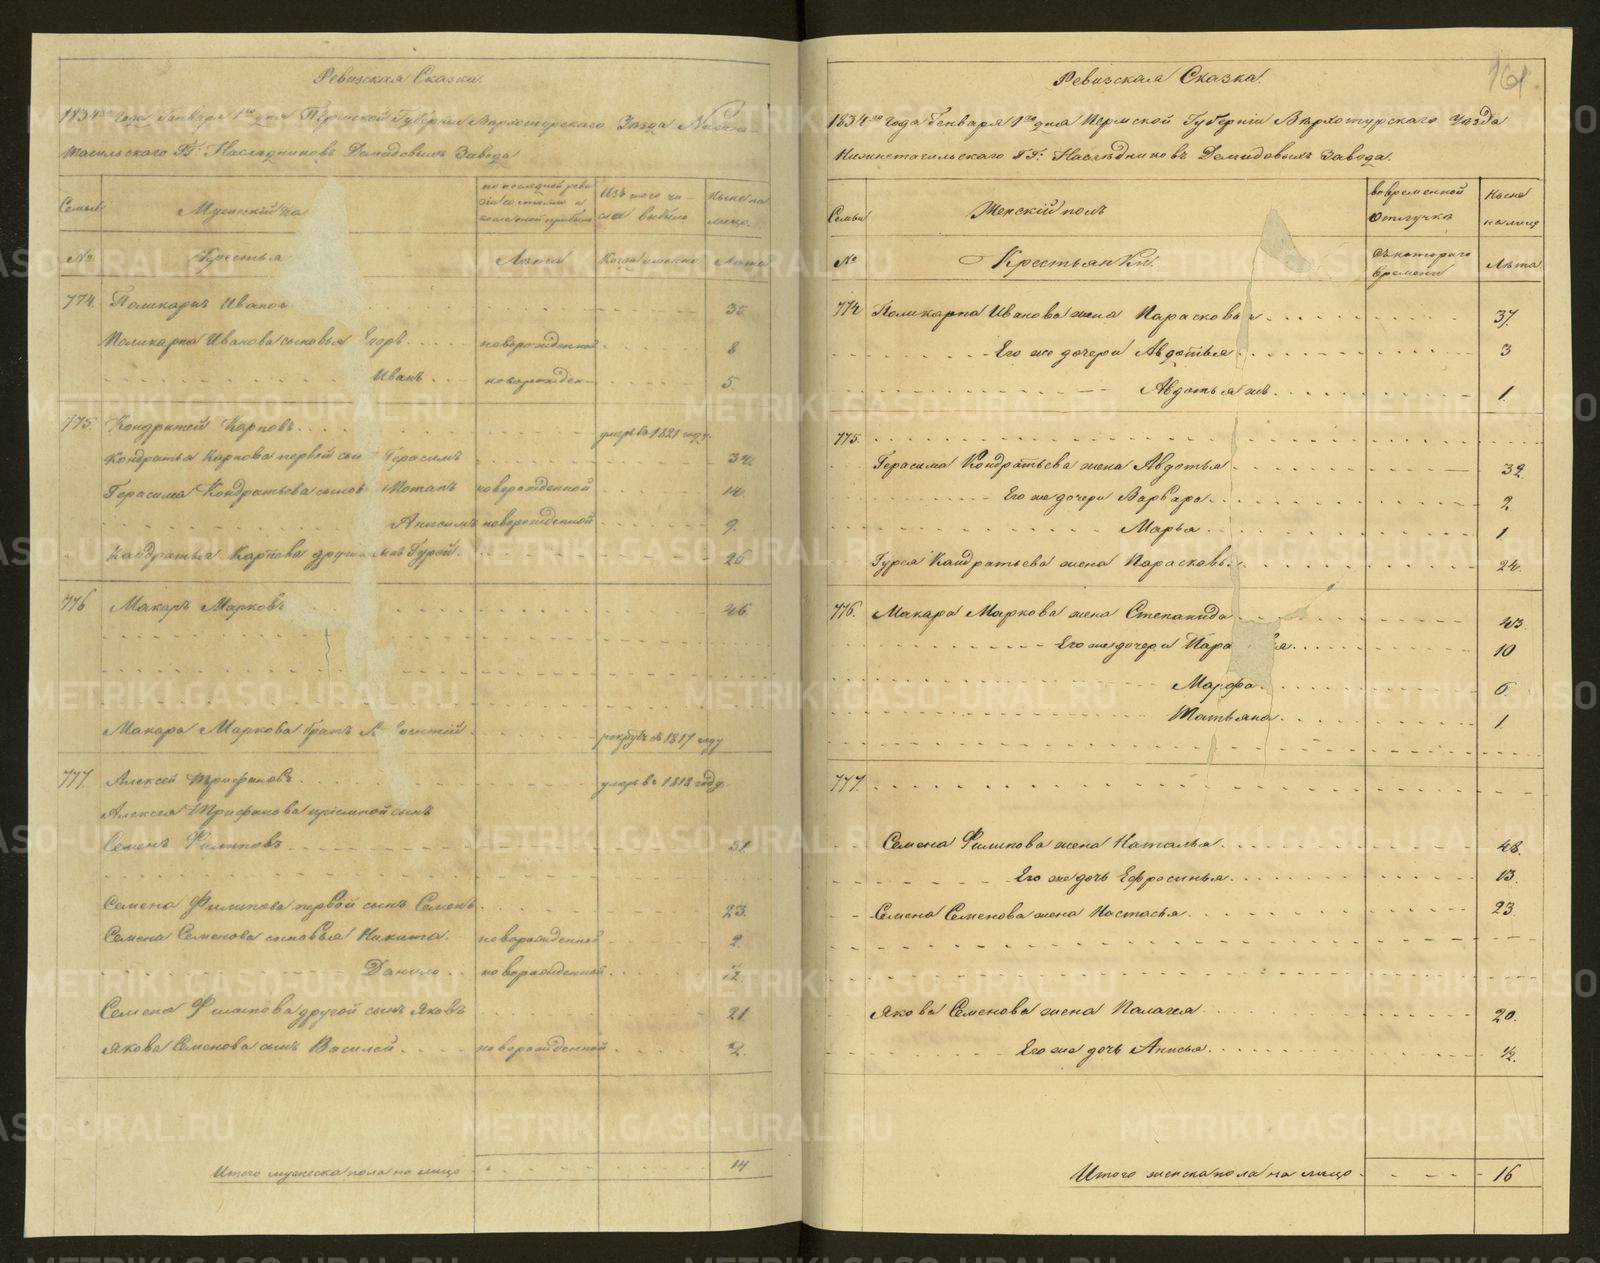 Ревизская Сказка.
1834го года Генваря 1го дня Пермской Губернии Верхотурского Уезда Нижне-
тагильского ГГ: Наследниковъ Демидовыхъ Завода
Семьи
Мужескій полъ
по последней реви
зіи состояло и
после оной прибыло
Изъ того чи-
сла выбыло
Ныне на
лицо.
№
Крестьяня
Лѣта
Когда именно
Лѣта
774. Поликарпъ Ивановъ 35
Поликарпа Иванова сыновья Егоръ. новорожденной 8
Иванъ. новорожден 5.
775. Кондратей Карповъ. умеръ въ 1821 году.
Кондратья Карпова первой сын Герасимъ 34
Герасима Кондратьева сынов Потапъ новорожденной 14
Анисимъ новорожденной 9.
Кандратья Карпова други Гурей. 26
776 Макаръ Марковъ 46
Макара Маркова братъ рекрутъ въ 1817 году
777. Алексей Трифановъ. умеръ въ 1818 году
Алексея Трифанова пріемной сынъ
Семенъ Филиповъ 51.
Семена Филипова первой сынъ Семенъ 23.
Семена Семенова сыновья Никита. новорожденной 2
Данило. новорожденной 1/2
Семена Филипова другой сынъ Яковъ 21
Якова Семенова сынъ Василей. новорожденной 2.
Итого мужеска пола на лицо 14
161.
Ревизская Сказка.
1834го года Генваря 1го дня Пермской Губерніи Верхотурского Уезда
Нижнетагильского ГГ: Наследниковъ Демидовыхъ Завода.
Семьи
Женскій полъ
во временной
отлучке
Ныне
на лицо
№
Крестьянки.
Съ которого
времени
Лѣта
774 Поликарпа Иванова жена Парасковья 37.
Его же дочери Авдотья 3
Авдотья жъ 1.
775.
Герасима Кондратьева жена Авдотья 32
Его же дочери Варвара 2
Марья 1
Гурея Кандратьева жена Парасковь 24.
776. Макара Маркова жена Степанида 43.
Его же дочери Пара я 10
Марфа 6
Татьяна 1.
777.
Семена Филипова жена Наталья 48.
Его же дочь Ефросинья 13.
Семена Семенова жена Настасья 23
Якова Семенова жена Палагея 20.
Его же дочь Анисья 1/2.
Итого женска пола на лицо 16
METRIKI.GASO-URAL.RU